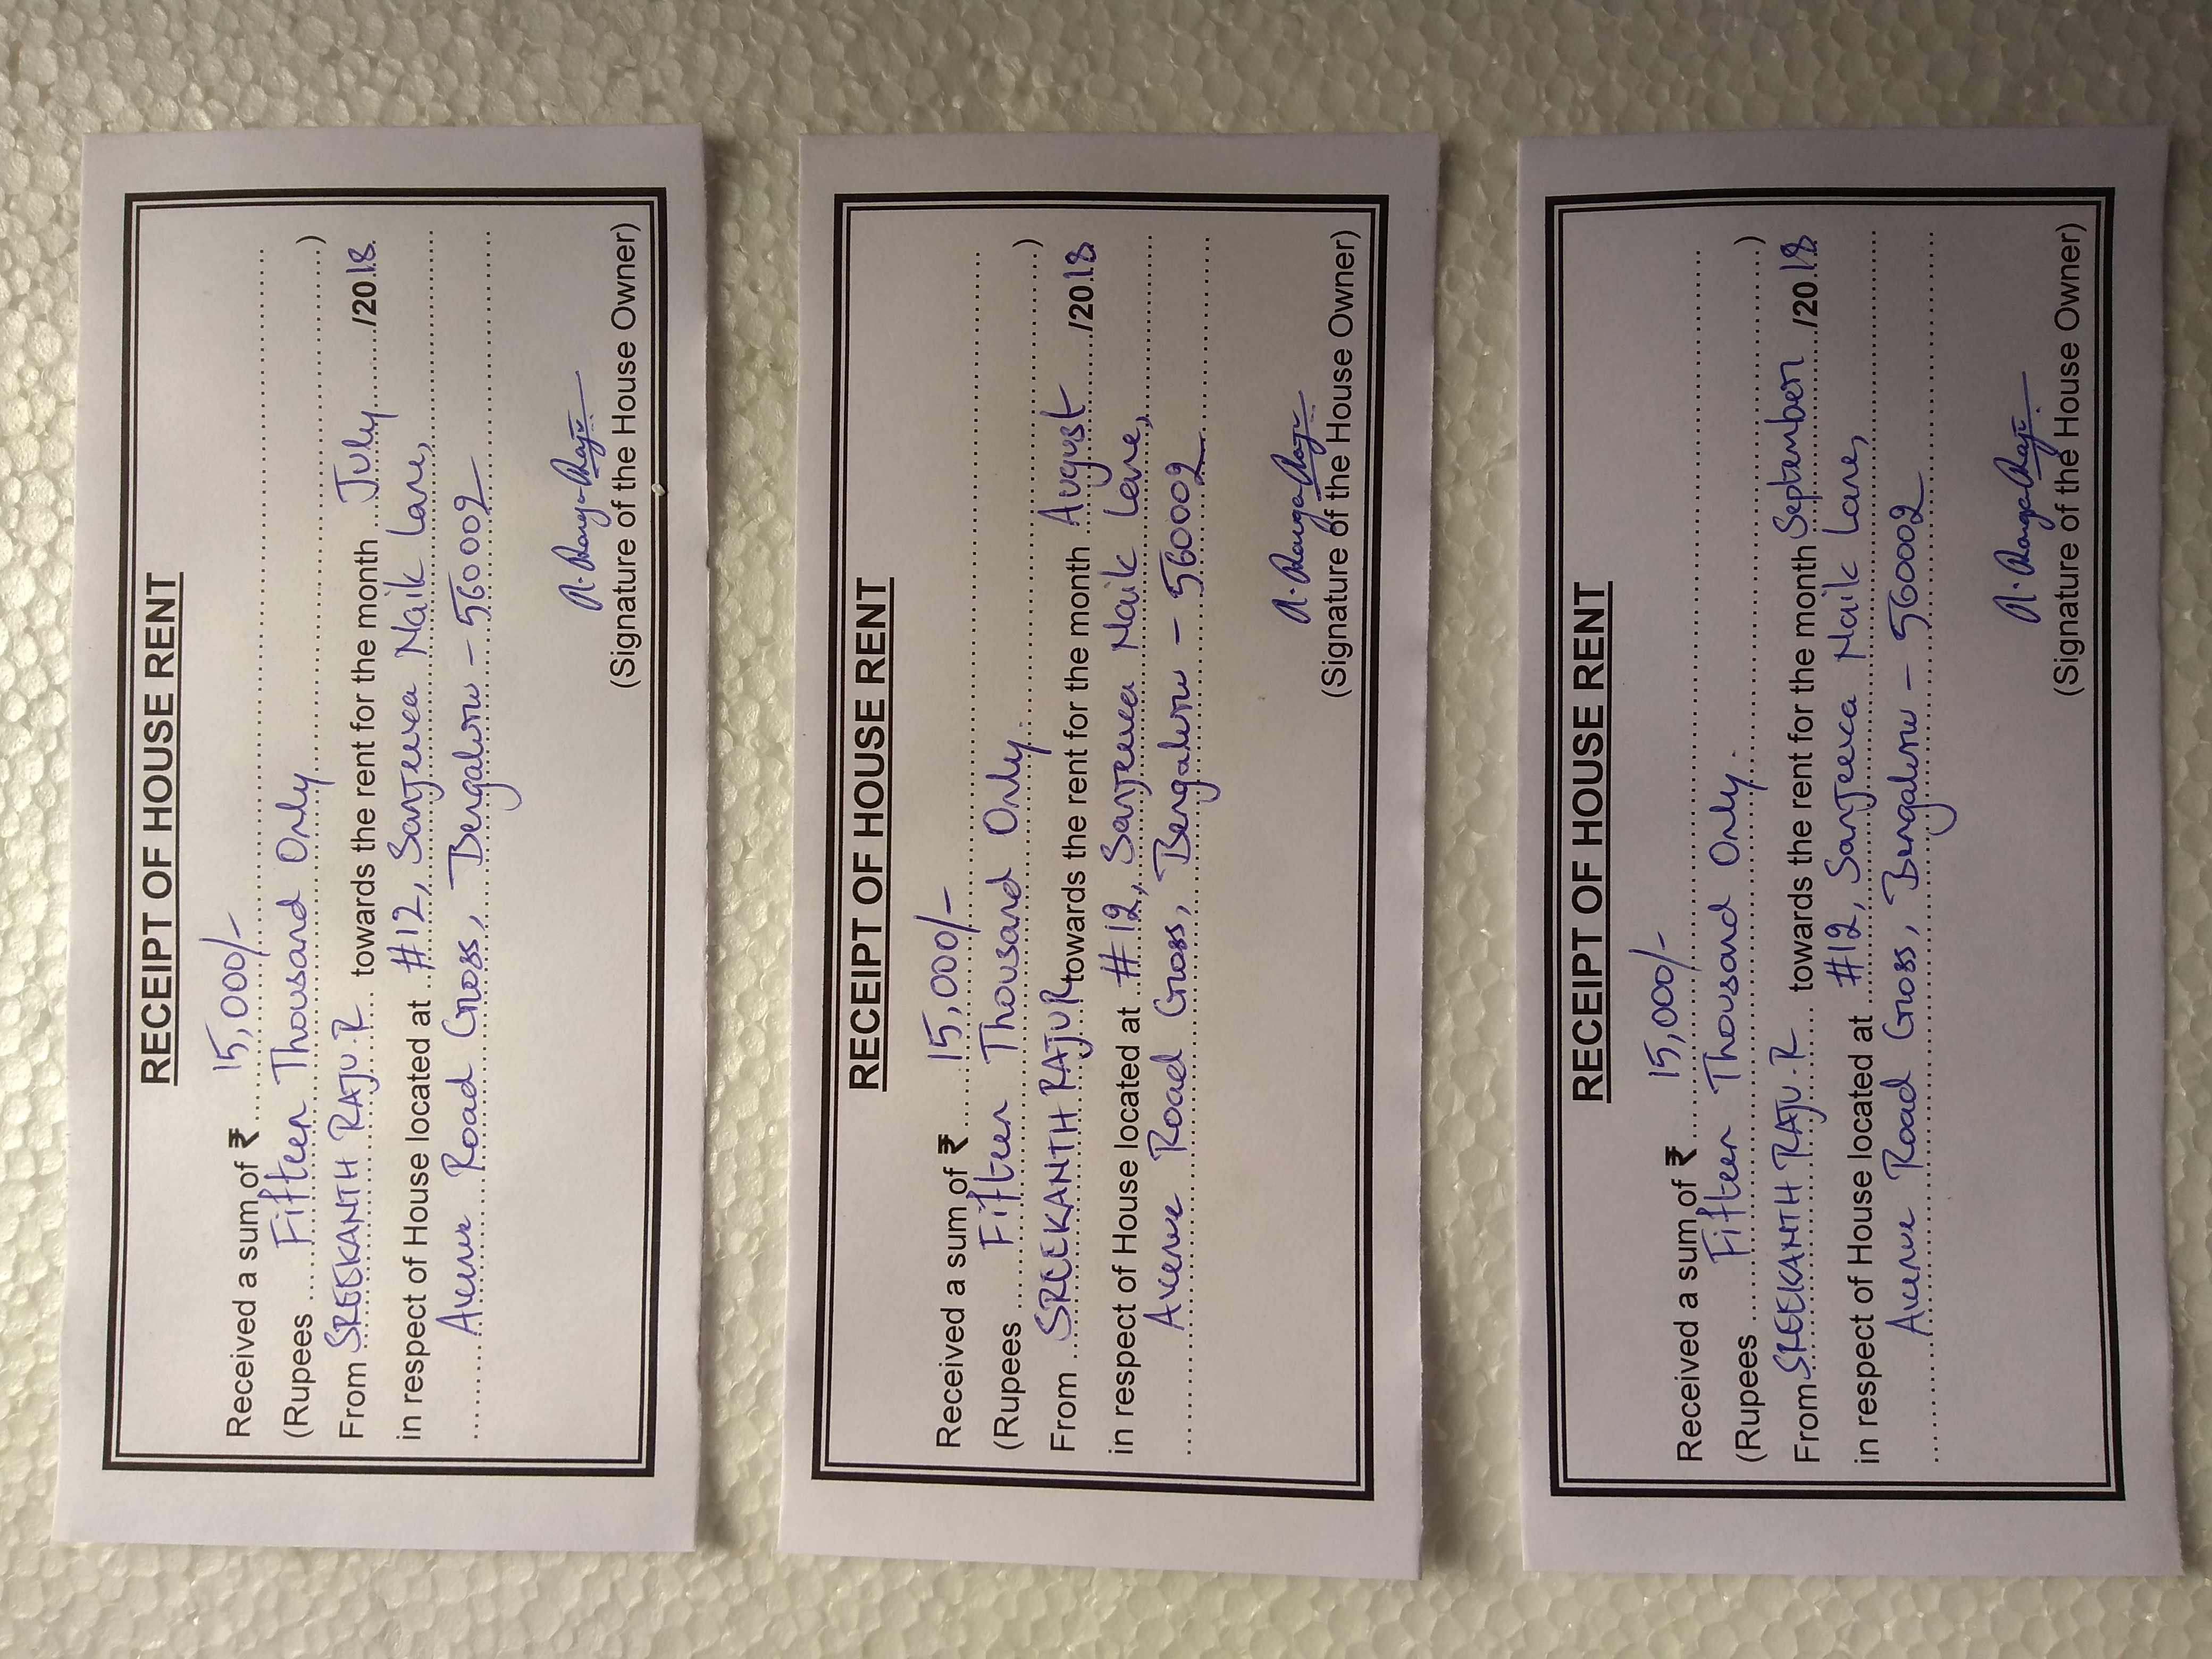 RECEIPT OF HOUSE RENT
Received a sum of ₹ 15,000/-
(Rupees Fifteen Thousand Only )
From SREEKANTH RAJU.R towards the rent for the month July /2018
in respect of House located at #12, Sanjeeva Naik Lane,
Avenue Road Cross, Bengaluru - 560002
R. Ranga Raju
(Signature of the House Owner)
RECEIPT OF HOUSE RENT
Received a sum of ₹ 15,000/-
(Rupees Fifteen Thousand Only. )
From SREEKANTH RAJU R towards the rent for the month August /2018
in respect of House located at #12, Sanjeeva Naik Lane,
Avenue Road Cross, Bengaluru - 560002
R. Ranga Raju
(Signature of the House Owner)
RECEIPT OF HOUSE RENT
Received a sum of ₹ 15,000/-
(Rupees Fifteen Thousand Only. )
From SREEKANTH RAJU.R towards the rent for the month September /2018
in respect of House located at #12, Sanjeeva Naik Lane,
Avenue Road Cross, Bengaluru - 560002
R. Ranga Raju
(Signature of the House Owner)